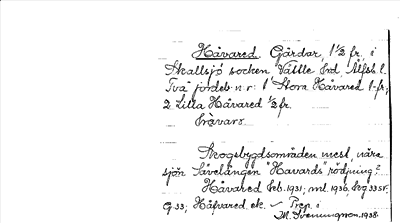 Håvared. Gårdar, 1 1/2 fr. i
Skallsjö socken Vättle hrd, Älfsb. l.
Två jordeb n:r: 1 Stora Håvared 1 fr;
2 Lilla Håvared 1/2 fr.
Skogsbygdsområden mest, nära
sjön Sävelången "Havards" rödjning?
Håvared Feb. 1931; ml. 1936,
G 33; Håfvared ek. – Trep. i
M. Svenningson. 1938.